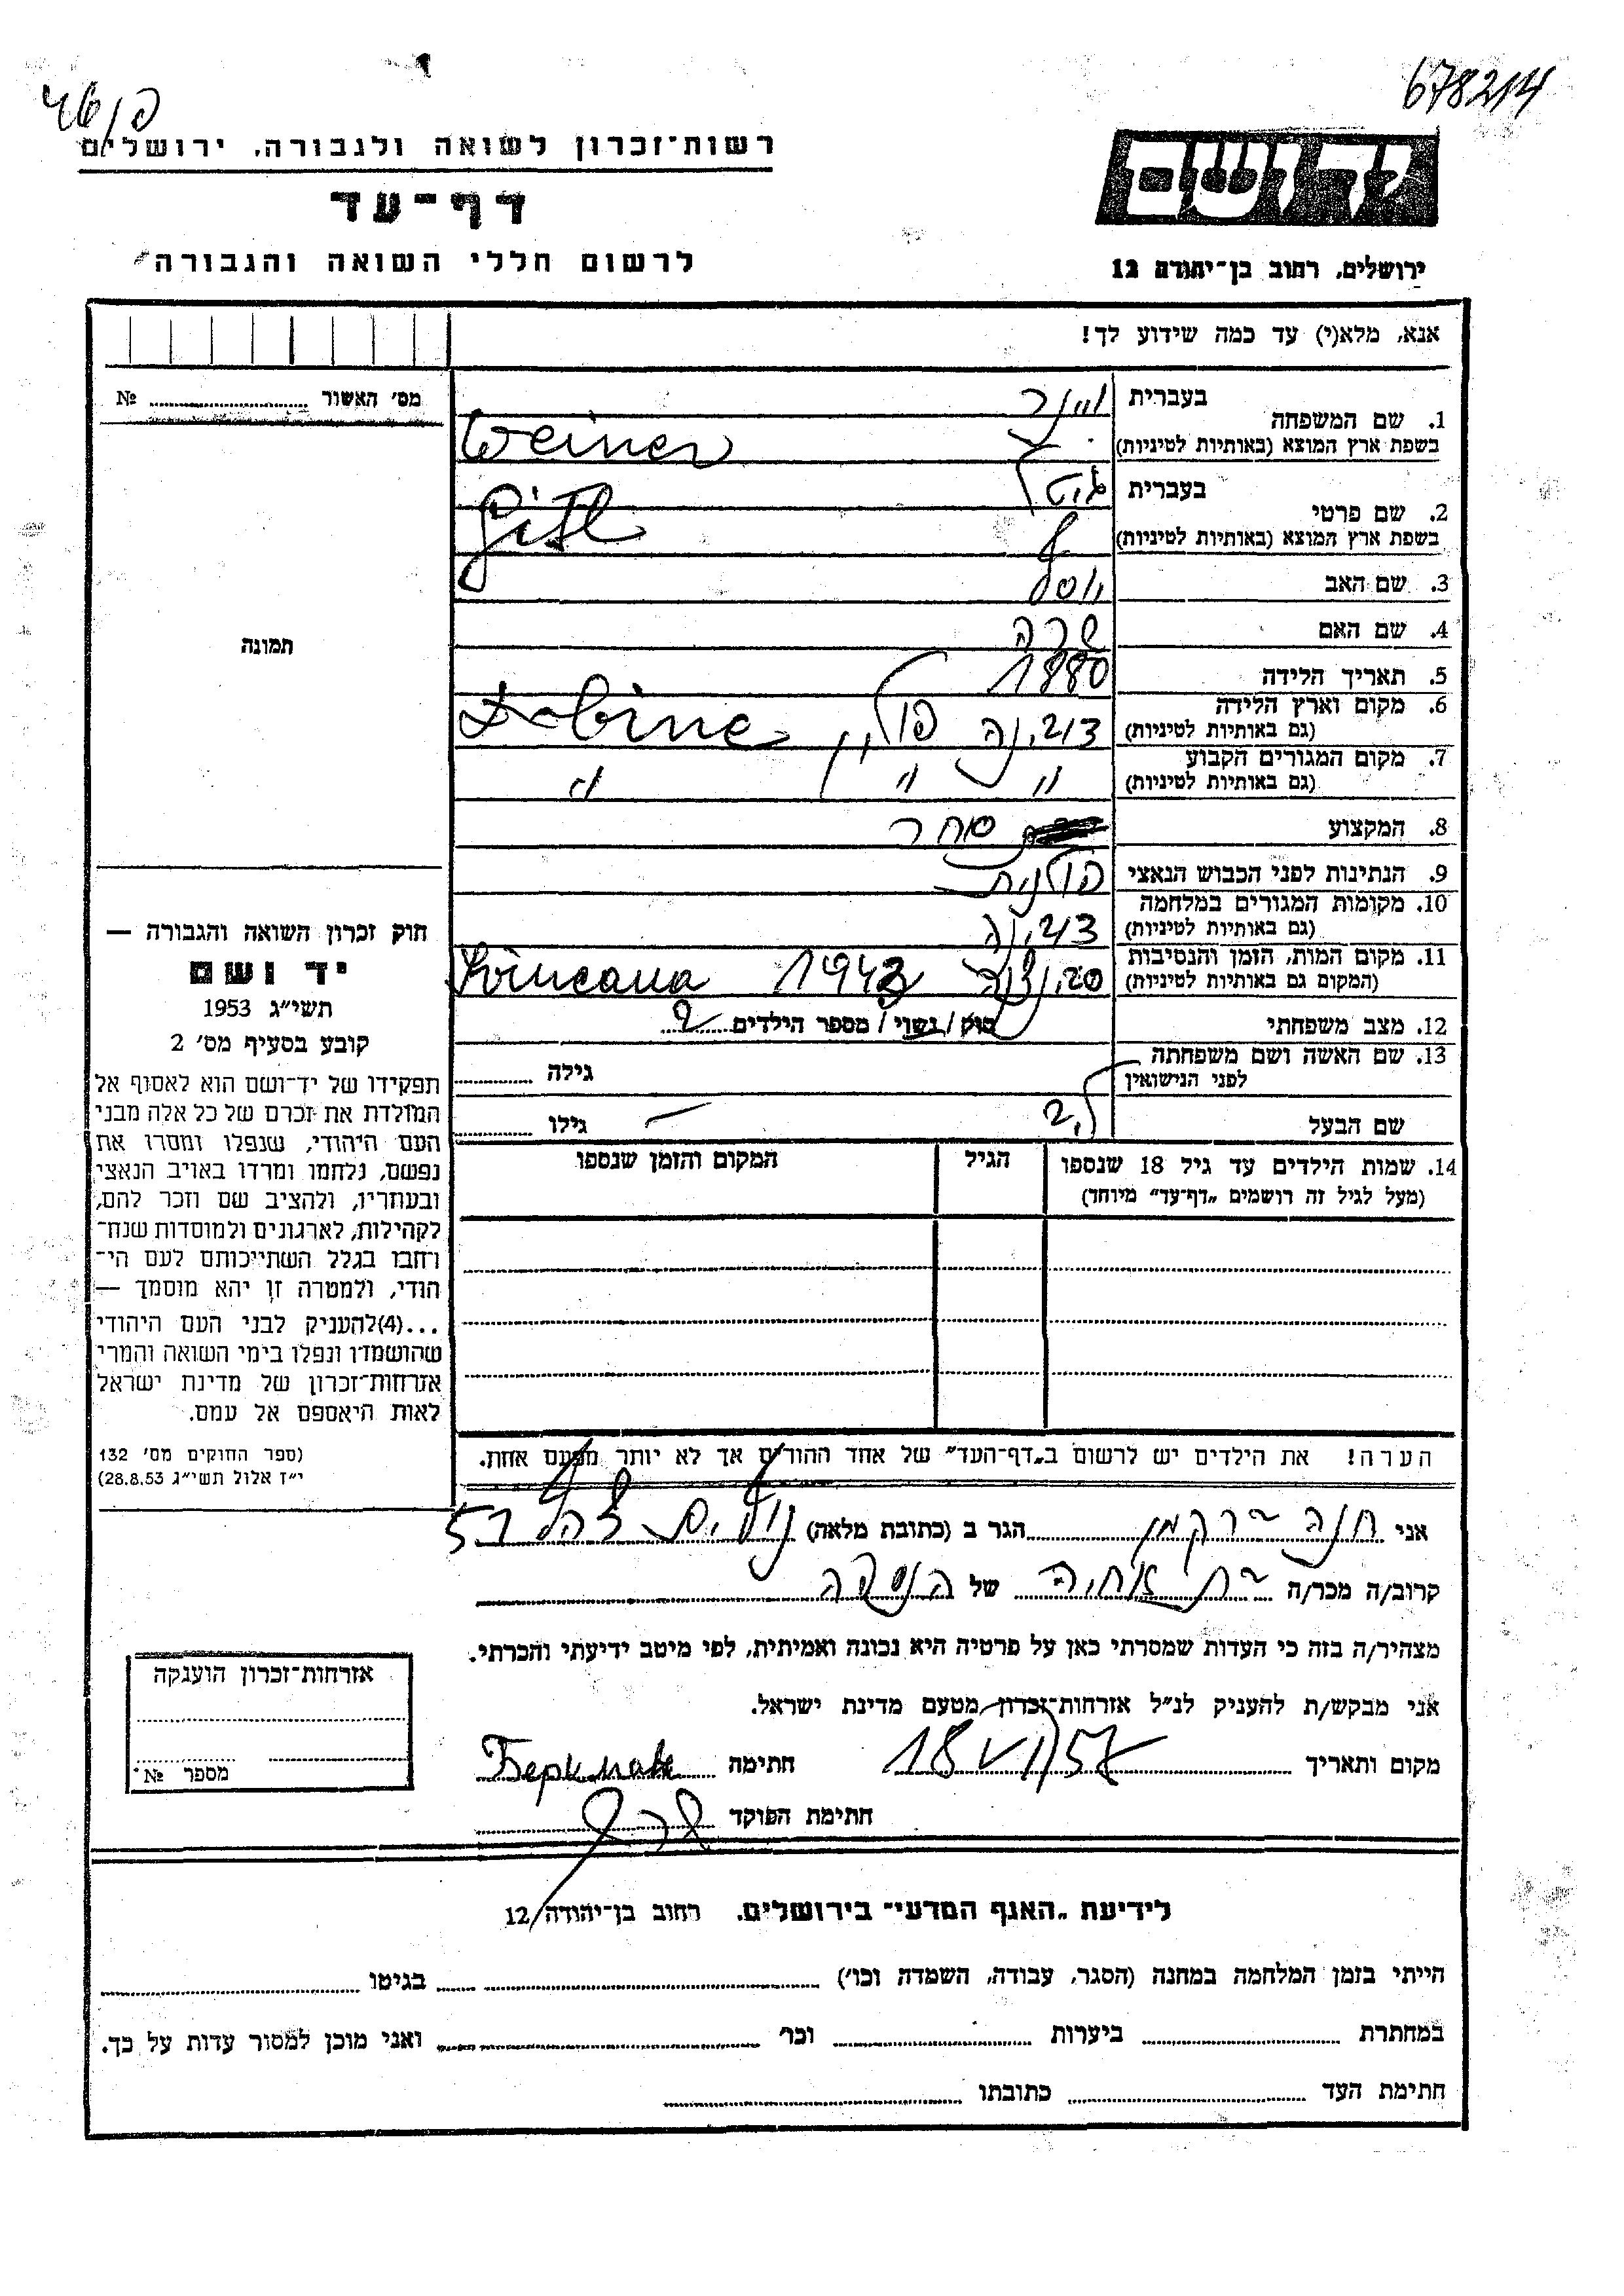 678214
יד ושם
ירושלים, רחוב בן־יהודה 12
רשות־זכרון לשואה ולגבורה, ירושלים
דף־עד
לרשום חללי השואה והגבורה
אנא, מלא(י) עד כמה שידוע לך!
מס׳ האשור № 
תמונה
חוק זכרון השואה והגבורה —
יד ושם
תשי״ג 1953
קובע בסעיף מס׳ 2
תפקידו של יד־ושם הוא לאסוף אל
המולדת את זכרם של כל אלה מבני
העם היהודי, שנפלו ומסרו את
נפשם, נלחמו ומרדו באויב הנאצי
ובעוזריו, ולהציב שם וזכר להם,
לקהילות, לארגונים ולמוסדות שנח־
רחבו בגלל השתייכותם לעם הי־
הודי, ולמטרה זו יהא מוסמך —
...(4)להעניק לבני העם היהודי
שהושמדו ונפלו בימי השואה והמרי
אזרחות־זכרון של מדינת ישראל
לאות היאספם אל עמם.
(ספר החוקים מס׳ 132
י״ז אלול תשי״ג 28.8.53)
1. שם המשפחה בעברית וינר
בשפת ארץ המוצא (באותיות לטיניות) Weiner
2. שם פרטי בעברית גיטל
בשפת ארץ המוצא (באותיות לטיניות) Gitl
3. שם האב יוסף
4. שם האם שרה
5. תאריך הלידה 1880
6. מקום וארץ הלידה (גם באותיות לטיניות) דובינה פולין Dobine
7. מקום המגורים הקבוע (גם באותיות לטיניות) " " "
8. המקצוע סוחר
9. הנתינות לפני הכבוש הנאצי פולנית
10. מקומות המגורים במלחמה (גם באותיות לטיניות) דובינה
11. מקום המות, הזמן והנסיבות (המקום גם באותיות לטיניות) 1943
12. מצב משפחתי רוק / נשוי / מספר הילדים 2
13. שם האשה ושם משפחתה לפני הנישואין גילה
שם הבעל גילו
14. שמות הילדים עד גיל 18 שנספו הגיל המקום והזמן שנספו
(מעל לגיל זה רושמים „דף־עד” מיוחד)
הערה! את הילדים יש לרשום ב„דף־העד” של אחד ההורים אך לא יותר מפעם אחת.
אני חנה ברקמן הגר ב (כתובת מלאה)
קרוב/ה מכר/ה בת אחיה של הנספה
מצהיר/ה בזה כי העדות שמסרתי כאן על פרטיה היא נכונה ואמיתית, לפי מיטב ידיעתי והכרתי.
אני מבקש/ת להעניק לנ״ל אזרחות־זכרון מטעם מדינת ישראל.
מקום ותאריך 18 VI 57 חתימה Беркман
חתימת הפוקד
אזרחות־זכרון הוענקה
מספר №
לידיעת „האגף המדעי” בירושלים, רחוב בן־יהודה 12
הייתי בזמן המלחמה במחנה (הסגר, עבודה, השמדה וכו׳) בגיטו
במחתרת ביערות וכו׳ ואני מוכן למסור עדות על כך.
חתימת העד כתובתו